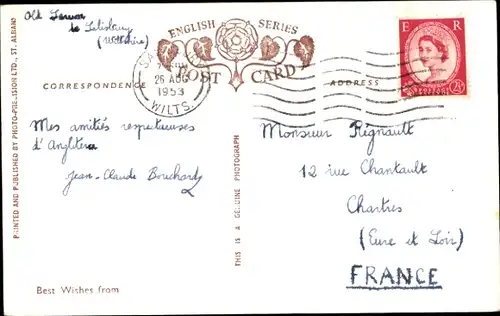 Old Sarum
to Salisbury
(Wiltshire)
ENGLISH SERIES
POST CARD
CORRESPONDENCE
ADDRESS
26 AUG
1953
WILTS.
E R
2½
Mes amitiés respectueuses
d'Angleterre
Jean-Claude Bouchard
Best Wishes from
PRINTED AND PUBLISHED BY PHOTO-PRECISION LTD., ST. ALBANS
THIS IS A GENUINE PHOTOGRAPH
Monsieur Régnault
12 rue Chantault
Chartres
(Eure et Loir)
FRANCE